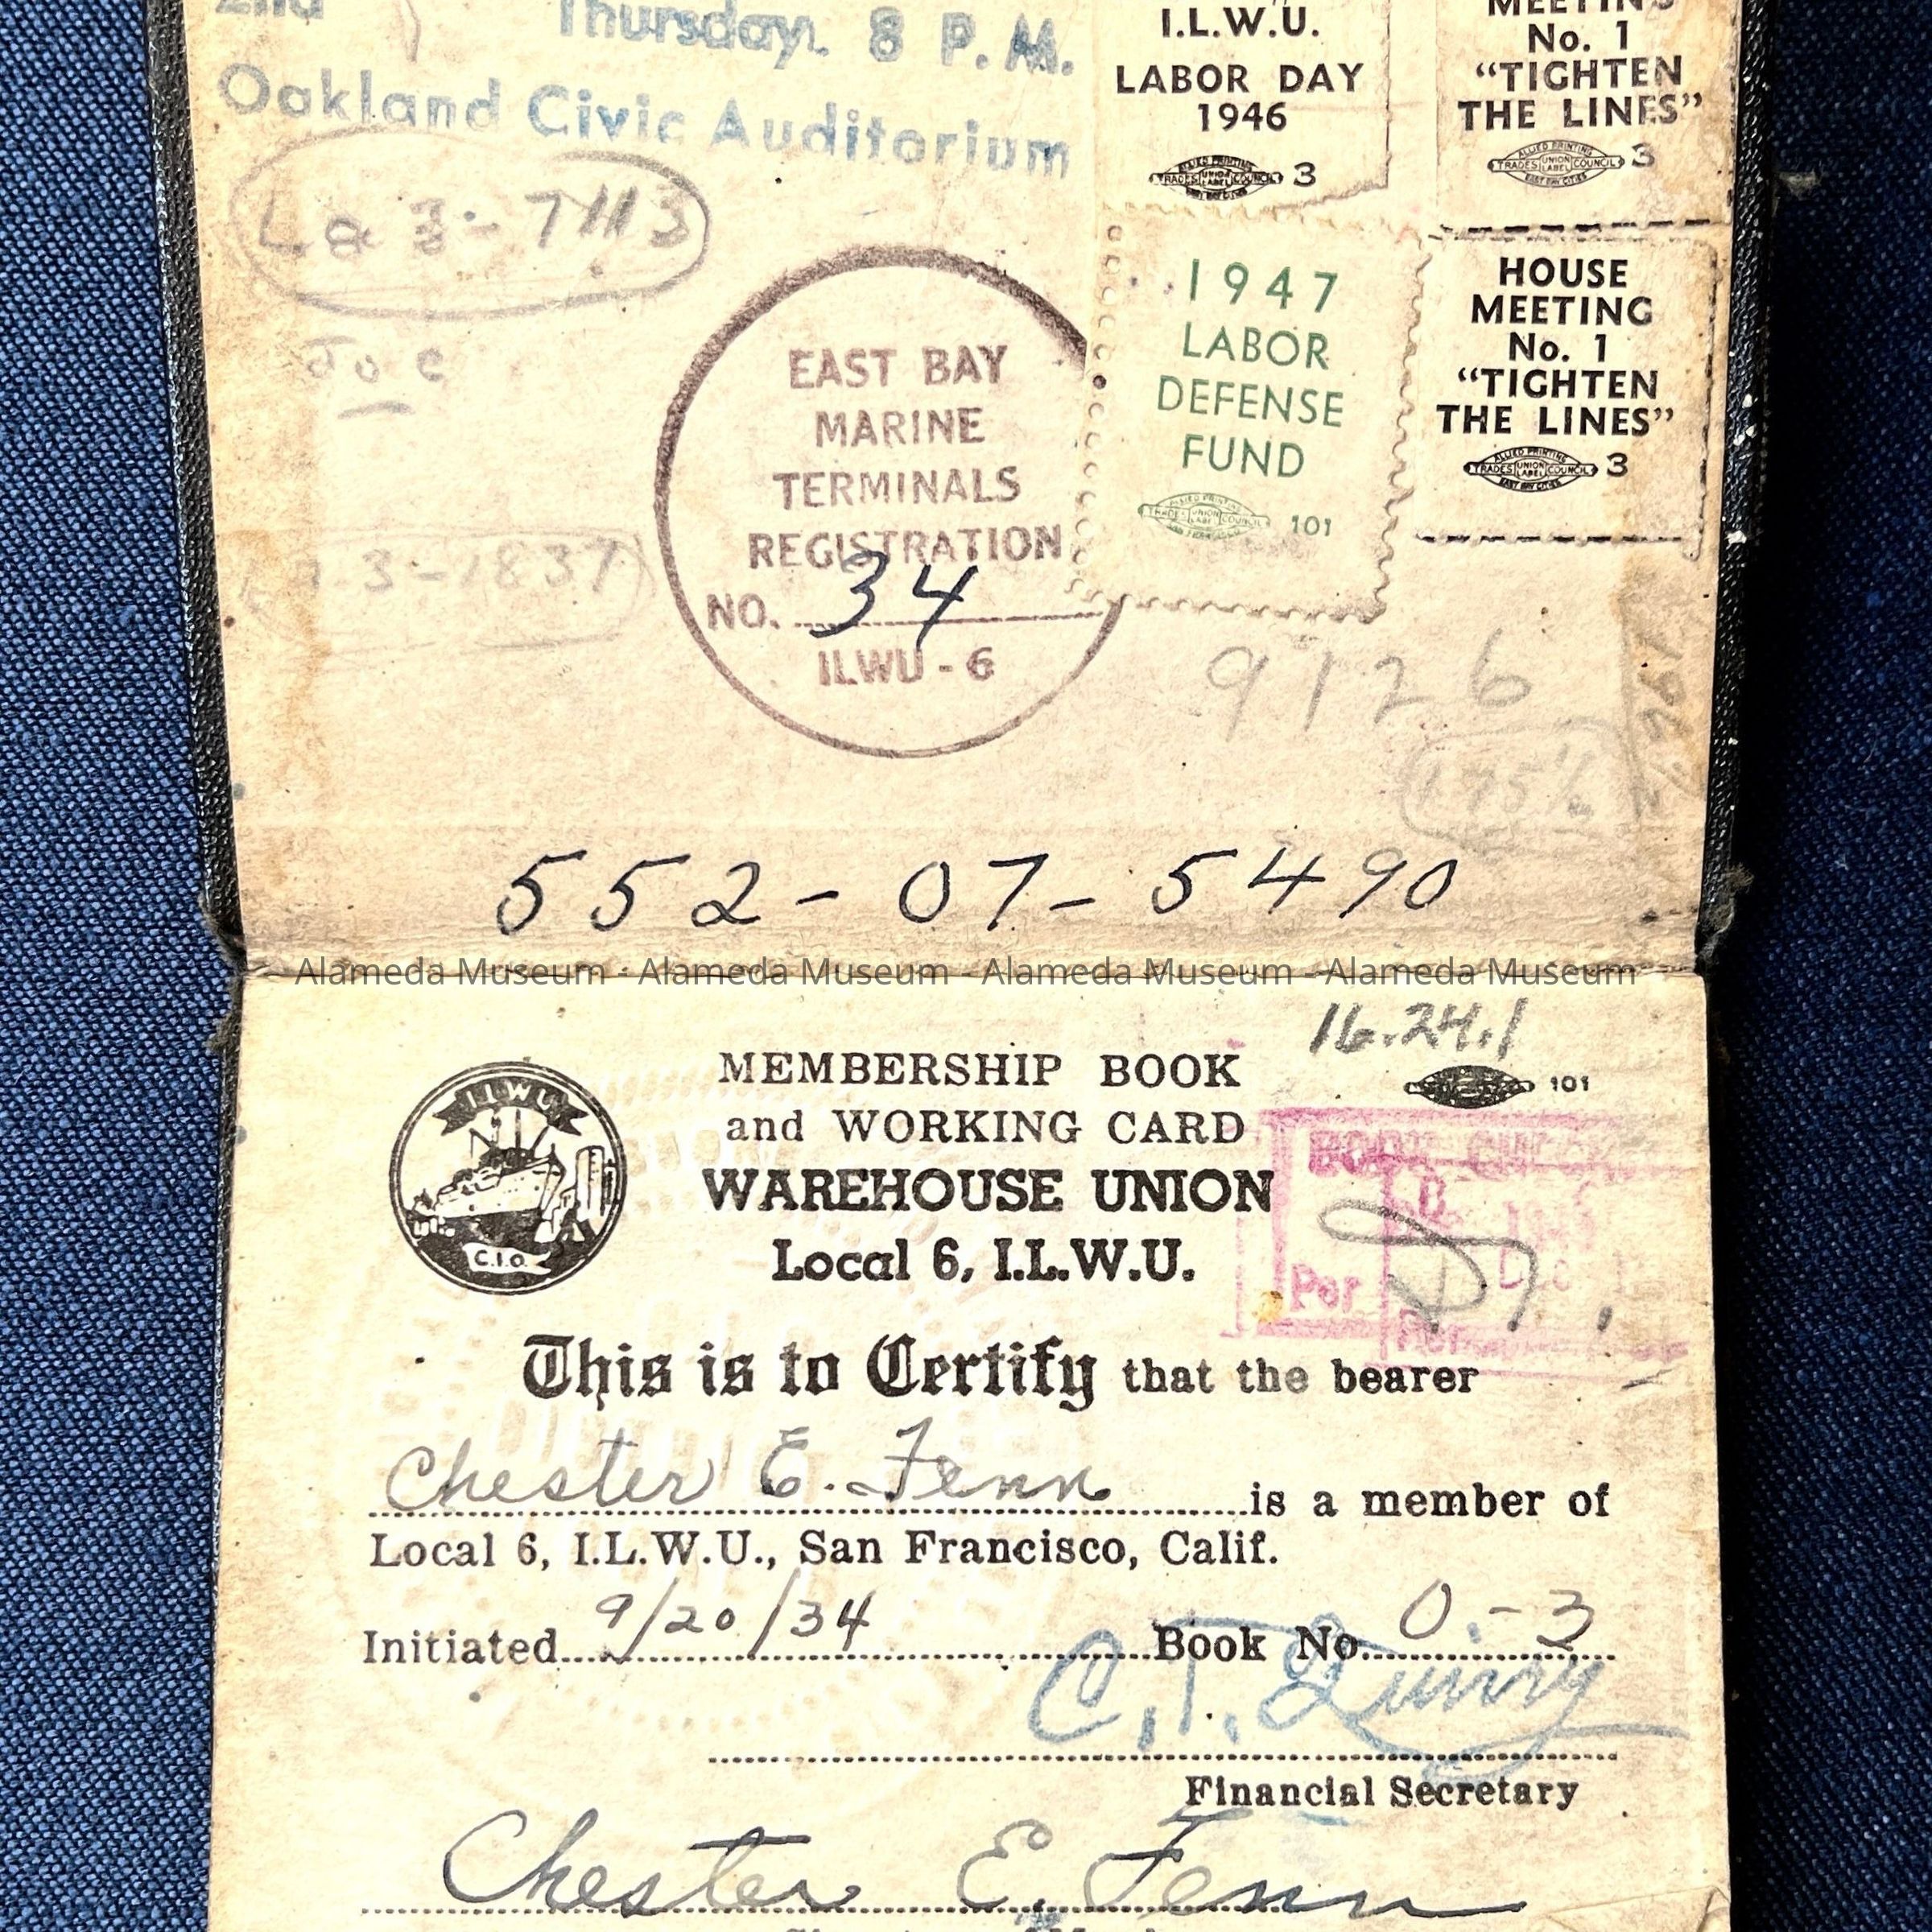 2nd Thursday. 8 P.M.
Oakland Civic Auditorium
La 3-7113
Joe
3-1837
I.L.W.U.
LABOR DAY
1946
ALLIED PRINTING
TRADES UNION LABEL COUNCIL 3
EAST BAY CITIES
MEETING
No. 1
“TIGHTEN
THE LINES”
ALLIED PRINTING
TRADES UNION LABEL COUNCIL 3
EAST BAY CITIES
1947
LABOR
DEFENSE
FUND
ALLIED PRINTING
TRADES UNION LABEL COUNCIL 101
HOUSE
MEETING
No. 1
“TIGHTEN
THE LINES”
ALLIED PRINTING
TRADES UNION LABEL COUNCIL 3
EAST BAY CITIES
EAST BAY
MARINE
TERMINALS
REGISTRATION
NO. 34
ILWU - 6
9126
552-07-5490
Alameda Museum - Alameda Museum - Alameda Museum - Alameda Museum
16.24.1
101
ILWU
C.I.O.
MEMBERSHIP BOOK
and WORKING CARD
WAREHOUSE UNION
Local 6, I.L.W.U.
BOOK
Per
This is to Certify that the bearer
Chester E. Fenn is a member of
Local 6, I.L.W.U., San Francisco, Calif.
Initiated 9/20/34 Book No. 0-3
C.T. Quirey
Financial Secretary
Chester E. Fenn